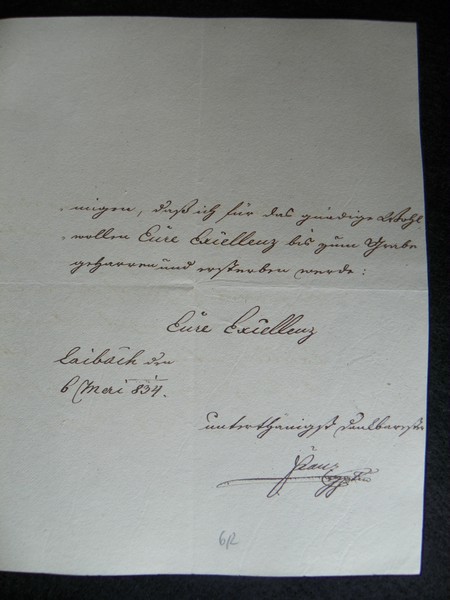 migen, daß ich für das gnädige Wohl
wollen Eüre Exzellenz bis zum Grabe
geharren und ersterben werde:
Eüre Exzellenz
Laibach den
6 Mai 834.
unterthänigst dankbarster
Franz
6R